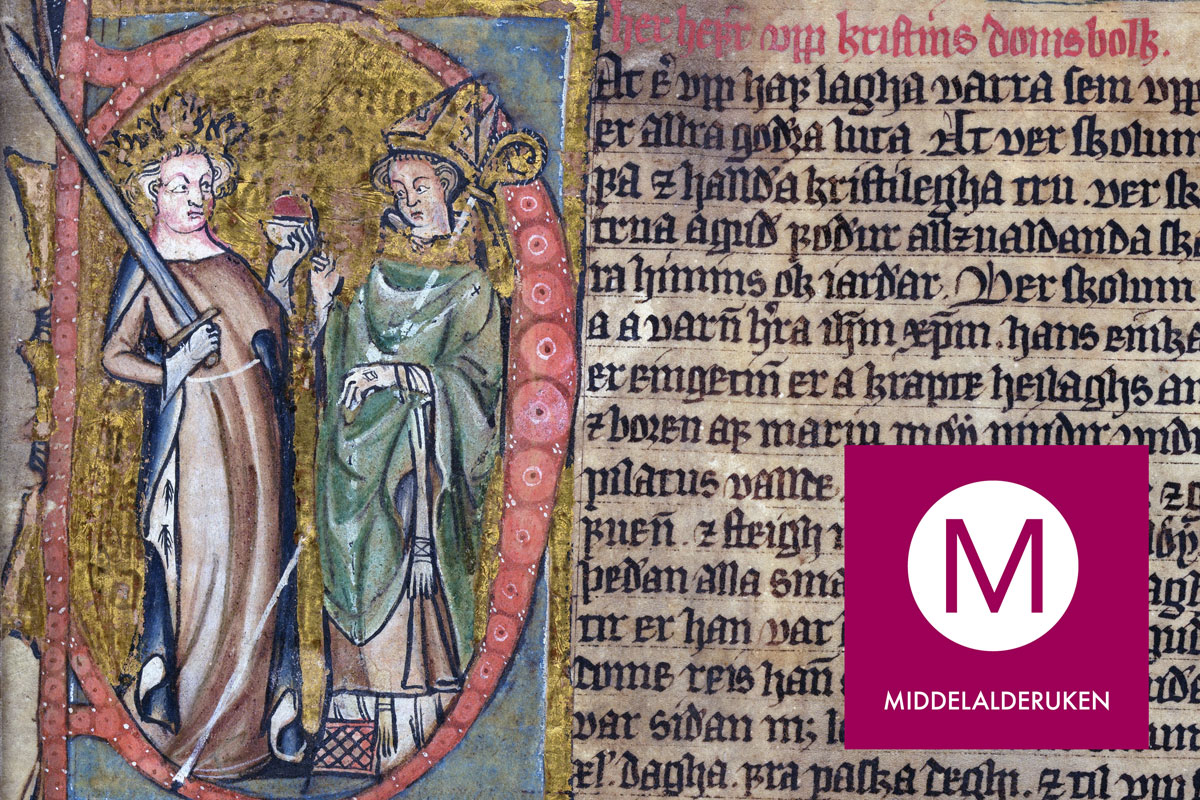 her hefr vpp kristins doms bolk.
At er vpp haf lagha varra sem vpp
er allra godra luta. At ver skolum
fa ⁊ hallda kristilegha tru. ver sk
trua a gud fodur allzualdanda sk
ra himins ok iardar. Ver skolum
a a varn̄ hr̄a ihm̄ xp̄m. hans einke
er eingetin̄ er a krapte heilaghs an
⁊ boren af mariu
pilatus vallde
⁊ steigh
alla sma
tir er han var
dome reis han̄
var sidan
xlˑ dagha. fra paska deghi. ⁊ til vpp
M
MIDDELALDERUKEN